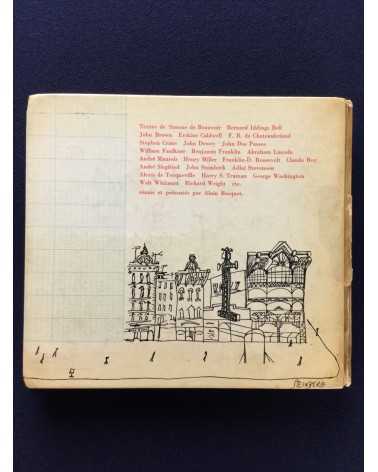 Textes de Simone de Beauvoir Bernard Iddings Bell
John Brown Erskine Caldwell F. R. de Chateaubriand
Stephen Crane John Dewey John Dos Passos
William Faulkner Benjamin Franklin Abraham Lincoln
André Maurois Henry Miller Franklin-D. Roosevelt Claude Roy
André Siegfried John Steinbeck Adlai Stevenson
Alexis de Tocqueville Harry S. Truman George Washington
Walt Whitman Richard Wright etc.
réunis et présentés par Alain Bosquet.
STEINBERG